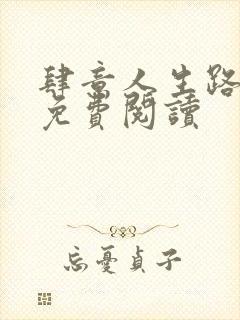 肆意人生路
免費閱讀
忘憂貞子